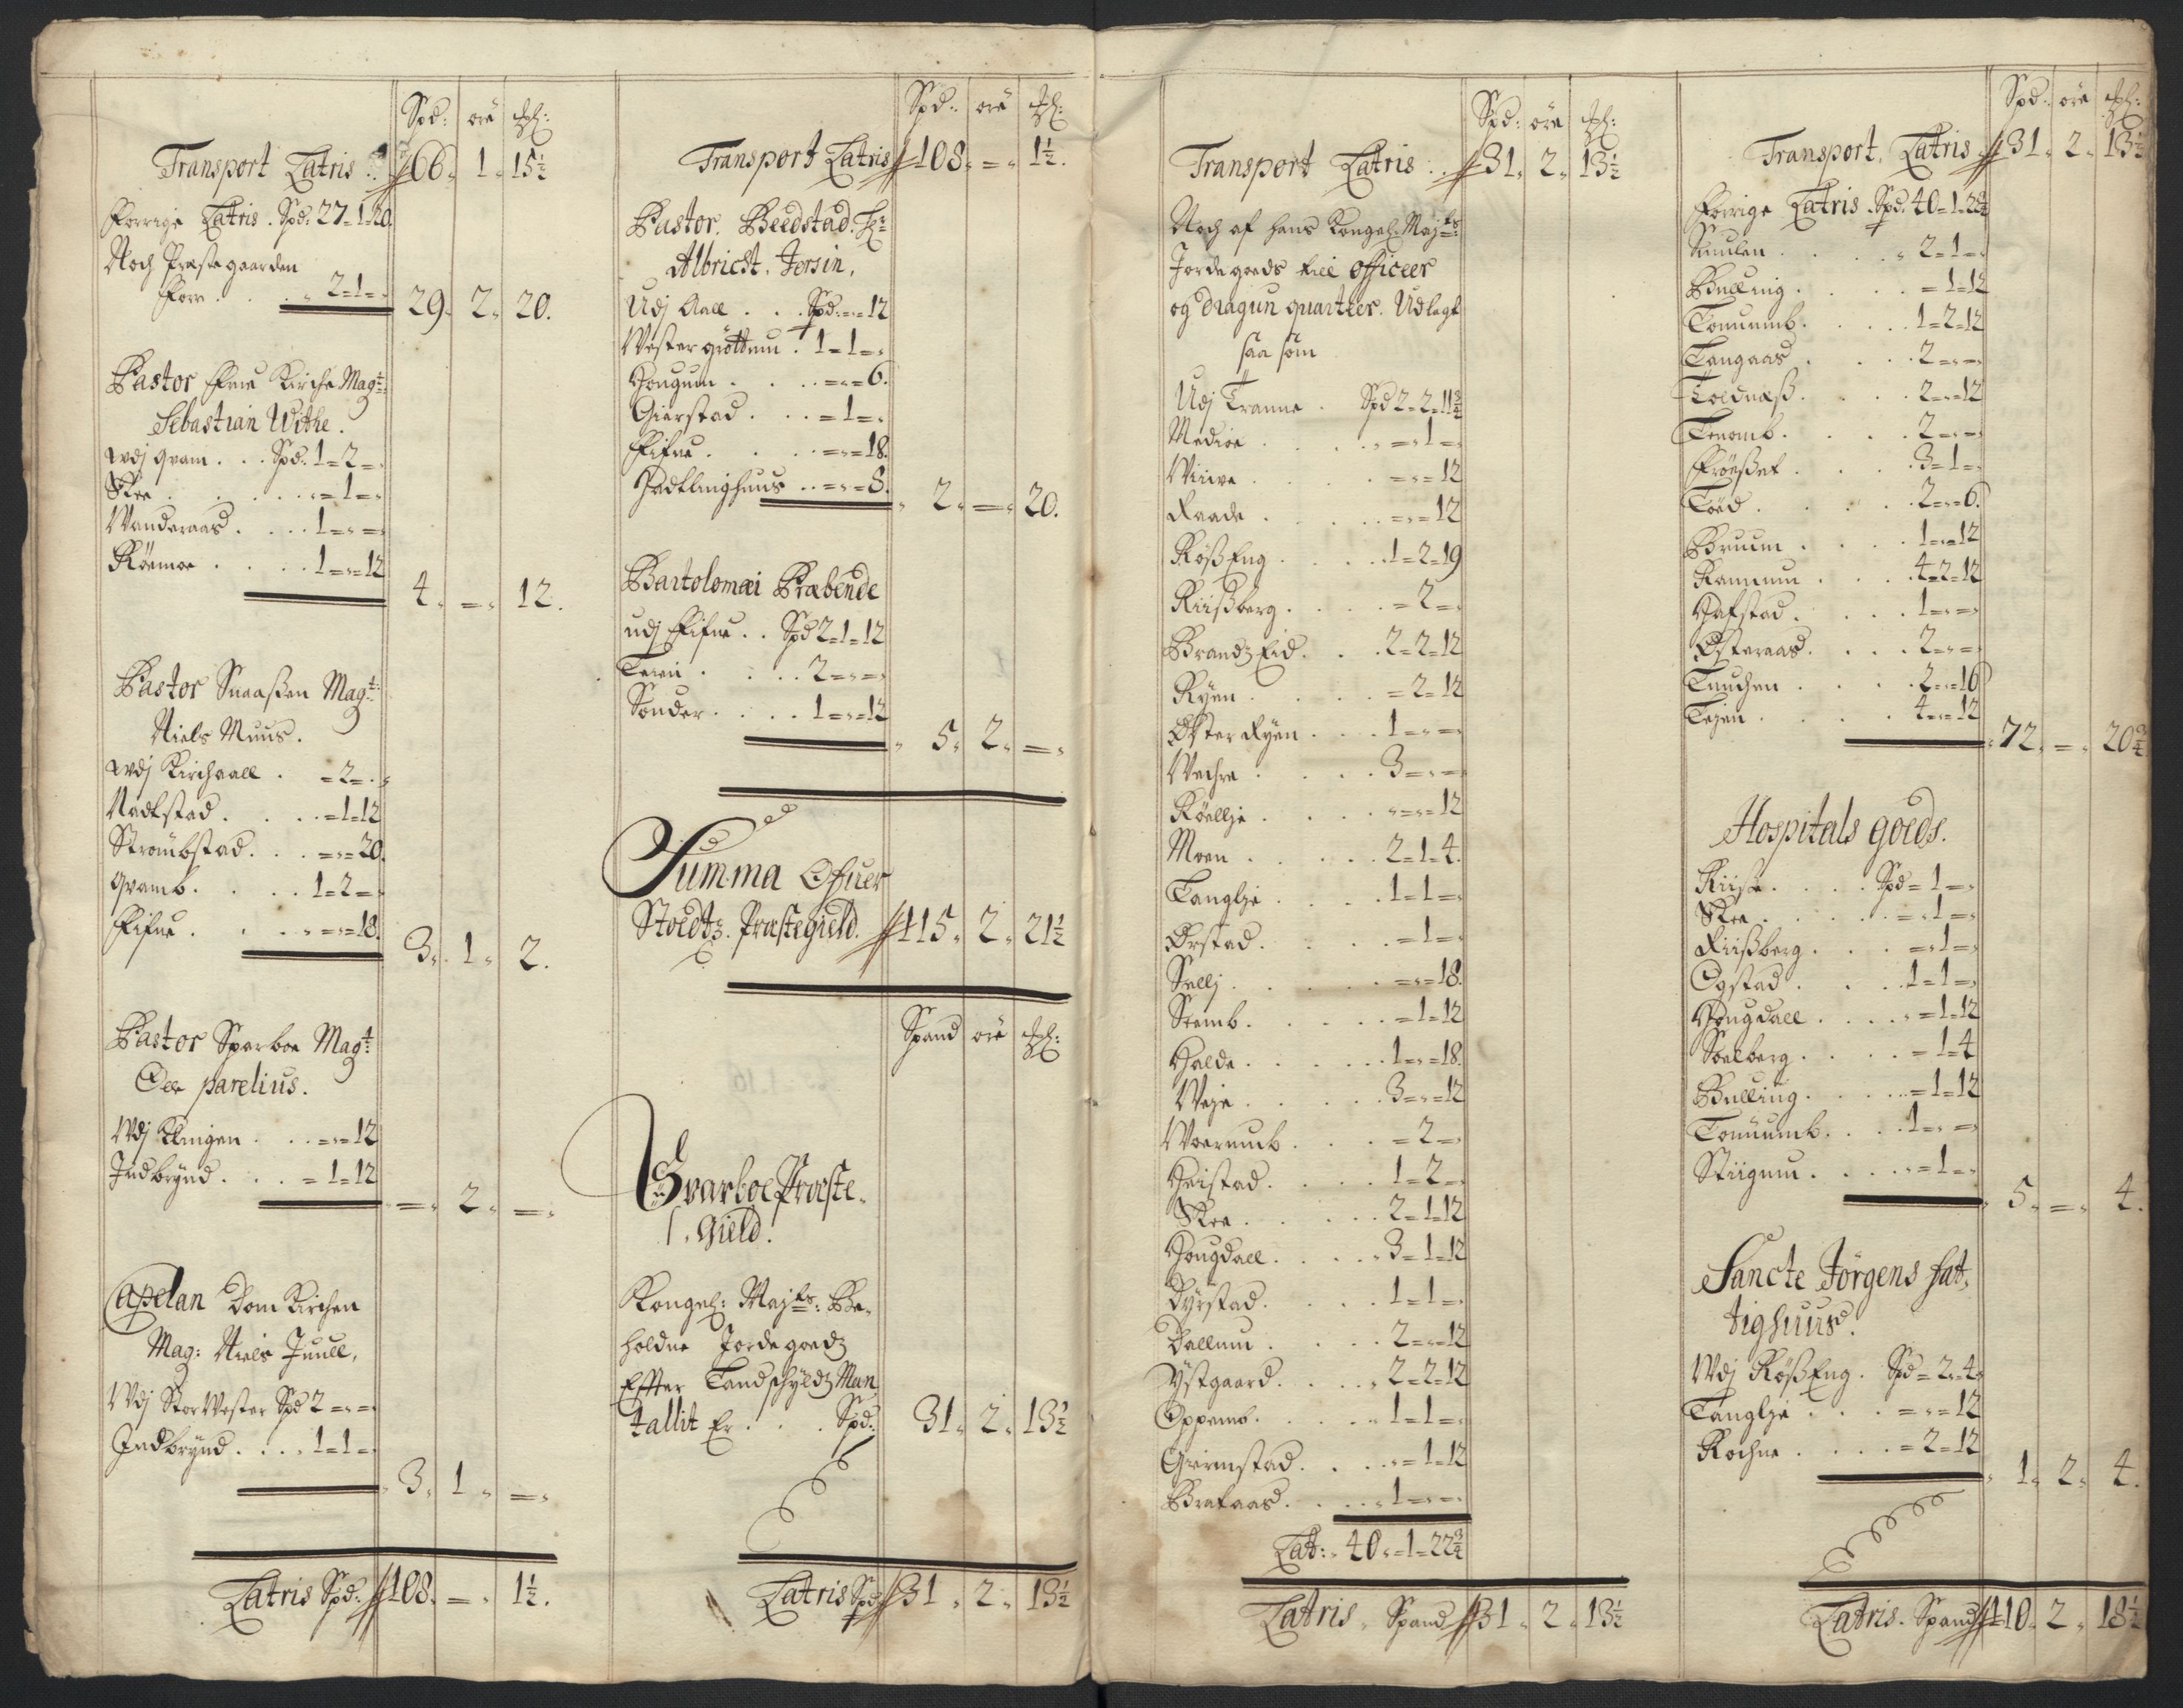 Spd: ore
Transport Latris 66. 1. 15½
Forrige Latris. Spd: 27=1=20.
Noch Præstegaarden
Forr . . . 2=1=. 29. 2. 20.
Pastor Frue Kirche Magt:
Sebastian Withe.
Wdj Gram . . Spd: 1=2=.
Skee . . . =1=.
Wanderaas . . . 1=.=.
Röemoe . . . 1=.=12
4. =. 12.
Pastor Snaaßen Magt:
Niels Muus.
Wdj Kirchaall . =2=.
Nadkstad . . . =1=12
Strömbstad . . . =.=20.
Gramb . . . 1=2=.
Fifue . . . =.=18.
3. 1. 2.
Pastor Sparboe Magt:
Olle parelius.
Wdj Klingen . . =.=12
Indbrÿnd . . . =1=12
=. 2. =.
Capelan Dom Kirchen
Mag: Niels Juull,
Wdj Stor Wester Spd 2=.=.
Indbrÿnd . . . 1=1=.
3. 1. =.
Latris Spd: 108. =. 1½.
Spd: ore
Transport Latris 108. =. 1½.
Pastor. Beedstad. Hr:
Albricht. Jersin,
Udj Aall . . . Spd:=.=12
Wester gröttem . 1=1=.
Hougum . . . =.=6.
Gierstad . . . =1=.
Fifue . . . =.=18.
Jadklinghuus . . =.=8.
2. =. 20.
Bartolomæi Præbende
udj Fifue . . Spd 2=1=12
Leren . . . 2=.=.
Sonder . . . 1=.=12
5. 2. =.
Summa Ofuer
Stoedtz. Præstegield. 115. 2. 21½
Spand ore
Sparboe Præste-
Gield.
Kongel: Majts: Be-
holdne Jordegoedz
Effter Landschÿldz Man
tallit Er . . . Spd: 31. 2. 13½
Latris Spd: 31. 2. 13½
Spd: öre
Transport Latris . . 31. 2. 13½
Noch af hans Kongel. Majts
Jordegoeds till officeer
og dragun quarteer. Udlagt
saa som
Udj Tranne . Spd 2=2=11¾
Medioe . . . =1=
Wiiwe . . . =.=12
Raade . . . =.=12
Röß Eng . . . 1=2=19
Riißberg . . . =2=.
Brandz Eid . . 2=2=12
Rÿen . . . =2=12
Øster Rÿen . . . 1=.=
Wechre . . . 3=.=
Röellje . . . =.=12
Moen . . . 2=1=4.
Langlje . . . 1=1=.
Ørstad . . . =1=.
Sellj . . . =.=18.
Stemb . . . =1=12
Halde . . . 1=.=18.
Weje . . . 3=.=12
Woernumb . . . =2=.
Heistad . . . 1=2=.
Skee . . . 2=1=12
Hougdall . . . 3=1=12
Dÿrstad . . . 1=1=.
Dallum . . . 2=.=12
Ystgaard . . . 2=2=12
Oppemb . . . 1=1=.
Grimstad . . . =1=12
Brataas . . . 1=.=.
Lat: . 40.=1=22¾
Latris. Spand 31. 2. 13½
Spd: ore
Transport. Latris 31. 2. 13½
Forrige Latris. Spd. 40=1=22¾
Muulen . . . 2=1=.
Bulling . . . =1=12
Tonumb . . . 1=2=12
Langaas . . . 2=.=.
Toldnæß . . . 2=.=12
Lenomb . . . 2=.=.
Fröeßet . . . 3=1=.
Töed . . . 2=.=6.
Bruum . . . 1=.=12
Rannum . . . 4=2=12
Hafstad . . . 1=.=.
Østeraas . . . 2=.=.
Tuuchen . . . 2=.=16
Lejen . . . 4=.=12
72. =. 20¾
Hospitals goeds.
Riise . . . Spd=1=.
Skee . . . =1=.
Riißberg . . . =1=.
Ogstad . . . 1=1=.
Hougdall . . . =1=12
Soelberg . . . =1=4
Bulling . . . =1=12
Tonuumb . . . 1=.=
Stiigum . . . =1=.
5. =. 4.
Sancte Jörgens fat-
tighuus.
Wdj Röß Eng . Spd=2=4.
Langlje . . . =.=12
Rochne . . . =2=12
1. 2. 4.
Latris. Spand 110. 2. 18½